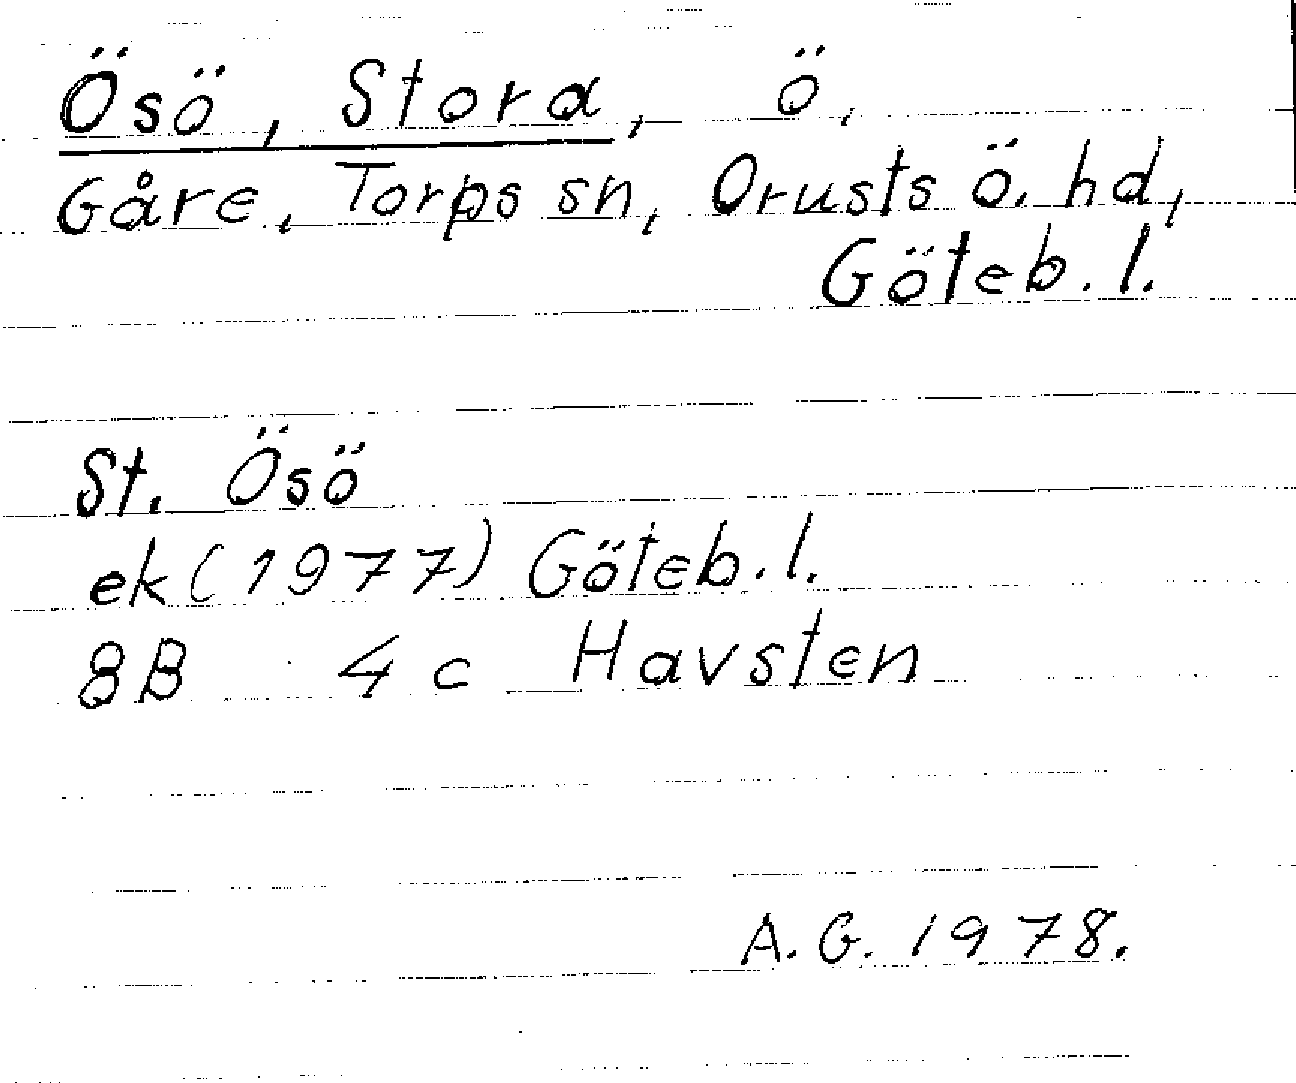 Ösö, Stora, ö,
Gåre, Torps sn, Orusts ö. hd,
Göteb. l.
St. Ösö
ek (1977) Göteb. l.
8B 4c Havsten
A. G. 1978.